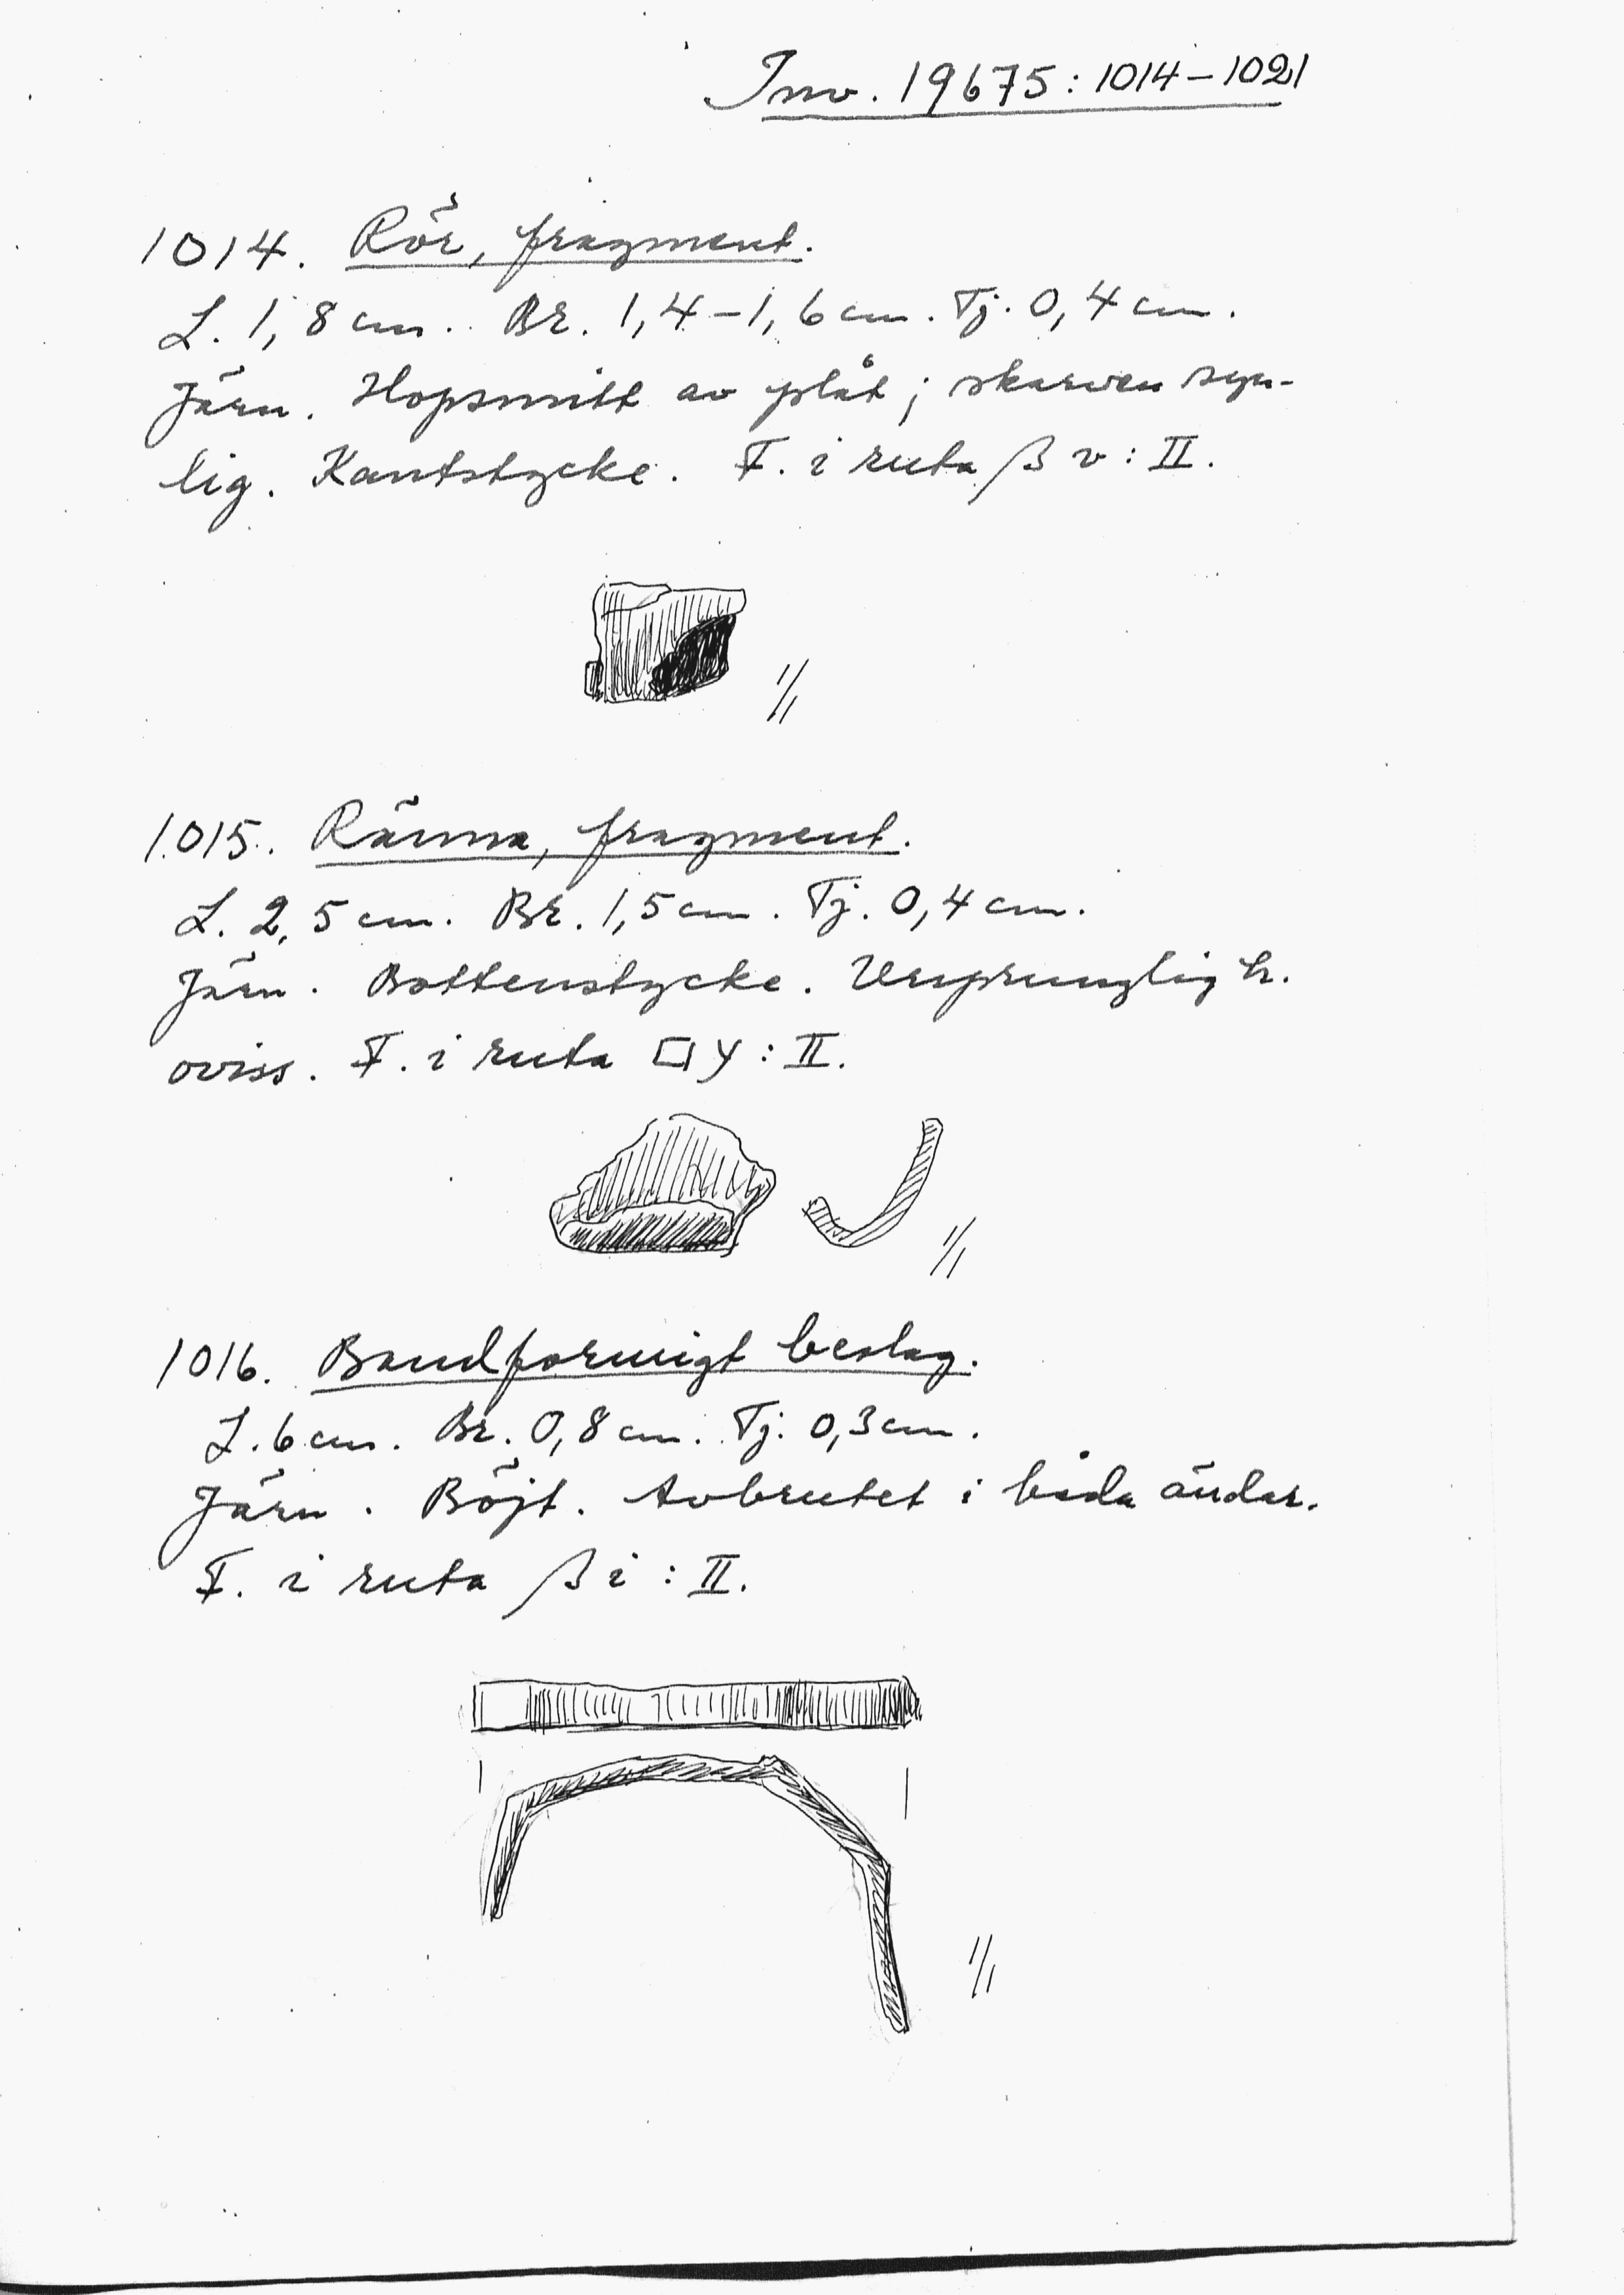 Inv. 19675:1014-1021
1014. Rör, fragment.
L. 1,8 cm. Br. 1,4-1,6 cm. Tj. 0,4 cm.
Järn. Hopsmitt av plåt; skarven syn-
lig. Kantstycke. F. i ruta β v:II.
1/1
1015. Ränna, fragment.
L. 2,5 cm. Br. 1,5 cm. Tj. 0,4 cm.
Järn. Bottenstycke. Ursprunglig h.
oviss. F. i ruta □ y:II.
1/1
1016. Bandformigt beslag.
L. 6 cm. Br. 0,8 cm. Tj. 0,3 cm.
Järn. Böjt. Avbrutet i båda ändar.
F. i ruta β i:II.
1/1